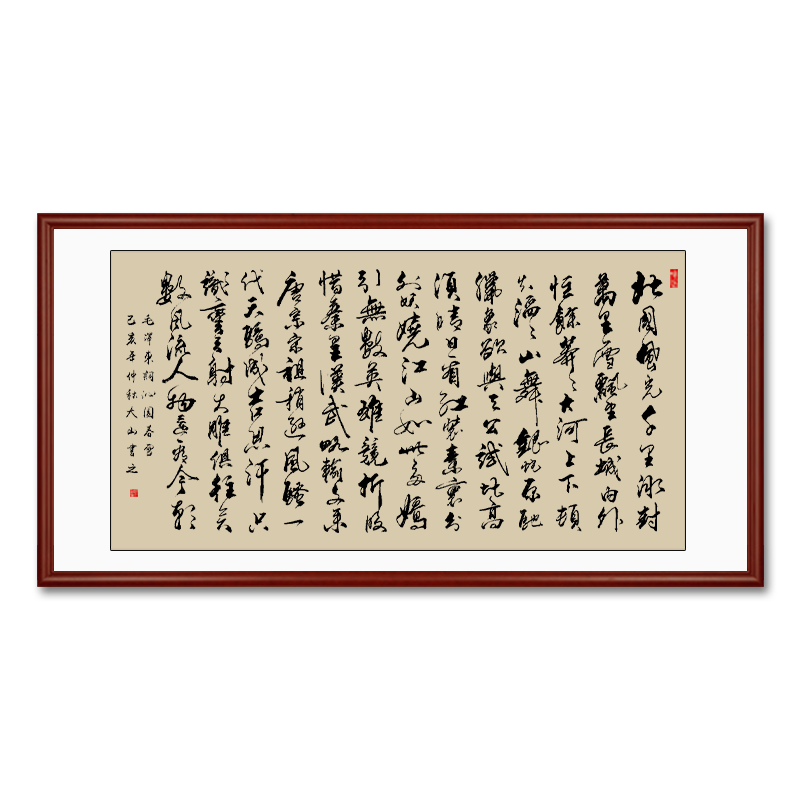 北國風光千里冰封
萬里雪飄望長城內外
惟餘莽〻大河上下頓
失滔〻山舞銀蛇原馳
蠟象欲與天公試比高
須晴日看紅裝素裹分
外妖嬈江山如此多嬌
引無數英雄競折腰
惜秦皇漢武略輸文采
唐宗宋祖稍遜風騷一
代天驕成吉思汗只
識彎弓射大雕俱往矣
數風流人物還看今朝
毛澤東詞沁園春雪
己亥年仲秋大山書之